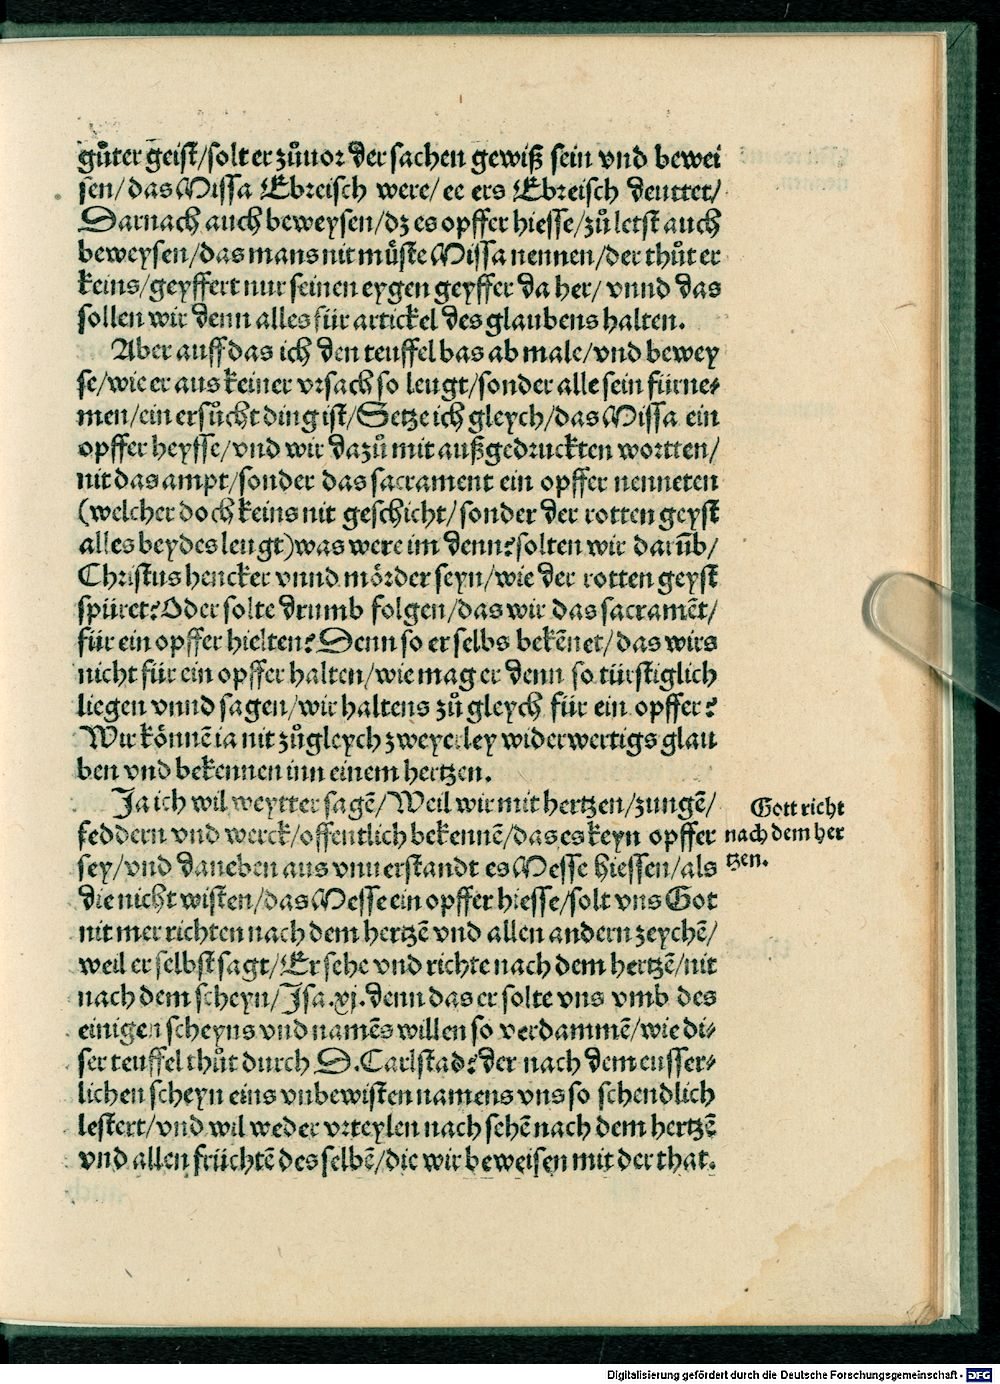 gůter geist/solt er zůuor der sachen gewiß sein vnd bewei
sen/das Missa Ebreisch were/ee ers Ebreisch deuttet/
Darnach auch beweysen/dz es opffer hiesse/zů letst auch
beweysen/das mans nit můste Missa nennen/der thůt er
keins/geyffert nur seinen eygen geyffer da her/vnnd das
sollen wir denn alles für artickel des glaubens halten.
Aber auff das ich den teuffel bas ab male/vnd bewey
se/wie er aus keiner vrsach so leugt/sonder alle sein fürne⸗
men/ein ersůcht ding ist/Setze ich gleych/das Missa ein
opffer heysse/vnd wir dazů mit außgedruckten wortten/
nit das ampt/sonder das sacrament ein opffer nenneten
(welcher doch keins nit geschicht/sonder der rotten geyst
alles beydes leugt)was were im denn?solten wir darūb/
Christus hencker vnnd mörder seyn/wie der rotten geyst
spüret?Oder solte drumb folgen/das wir das sacramēt/
für ein opffer hielten?Denn so er selbs bekēnet/das wirs
nicht für ein opffer halten/wie mag er denn so türstiglich
liegen vnnd sagen/wir haltens zů gleych für ein opffer?
Wir könnē ia nit zůgleych zweyerley widerwertigs glau
ben vnd bekennen inn einem hertzen.
Ja ich wil weytter sagē/Weil wir mit hertzen/zungē/
feddern vnd werck/offentlich bekennē/das es keyn opffer
sey/vnd daneben aus vnuerstandt es Messe hiessen/als
die nicht wisten/das Messe ein opffer hiesse/solt vns Got
nit mer richten nach dem hertzē vnd allen andern zeychē/
weil er selbst sagt/Er sehe vnd richte nach dem hertzē/nit
nach dem scheyn/Isa.xj.denn das er solte vns vmb des
einigen scheyns vnd namēs willen so verdammē/wie di⸗
ser teuffel thůt durch D.Carlstad?der nach dem eusser⸗
lichen scheyn eins vnbewisten namens vns so schendlich
lestert/vnd wil weder vrteylen nach sehē nach dem hertzē
vnd allen früchtē des selbē/die wir beweisen mit der that.
Gott richt
nach dem her
tzen.
Digitalisierung gefördert durch die Deutsche Forschungsgemeinschaft - DFG